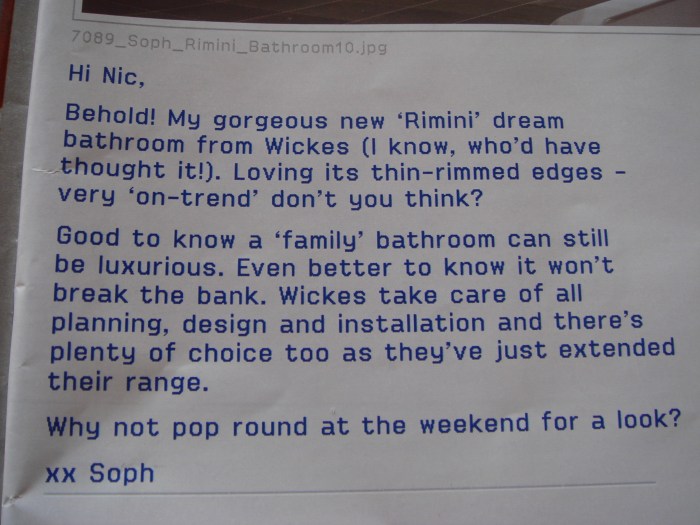 7089_Soph_Rimini_Bathroom10.jpg
Hi Nic,
Behold! My gorgeous new ‘Rimini’ dream
bathroom from Wickes (I know, who’d have
thought it!). Loving its thin-rimmed edges -
very ‘on-trend’ don’t you think?
Good to know a ‘family’ bathroom can still
be luxurious. Even better to know it won’t
break the bank. Wickes take care of all
planning, design and installation and there’s
plenty of choice too as they’ve just extended
their range.
Why not pop round at the weekend for a look?
xx Soph